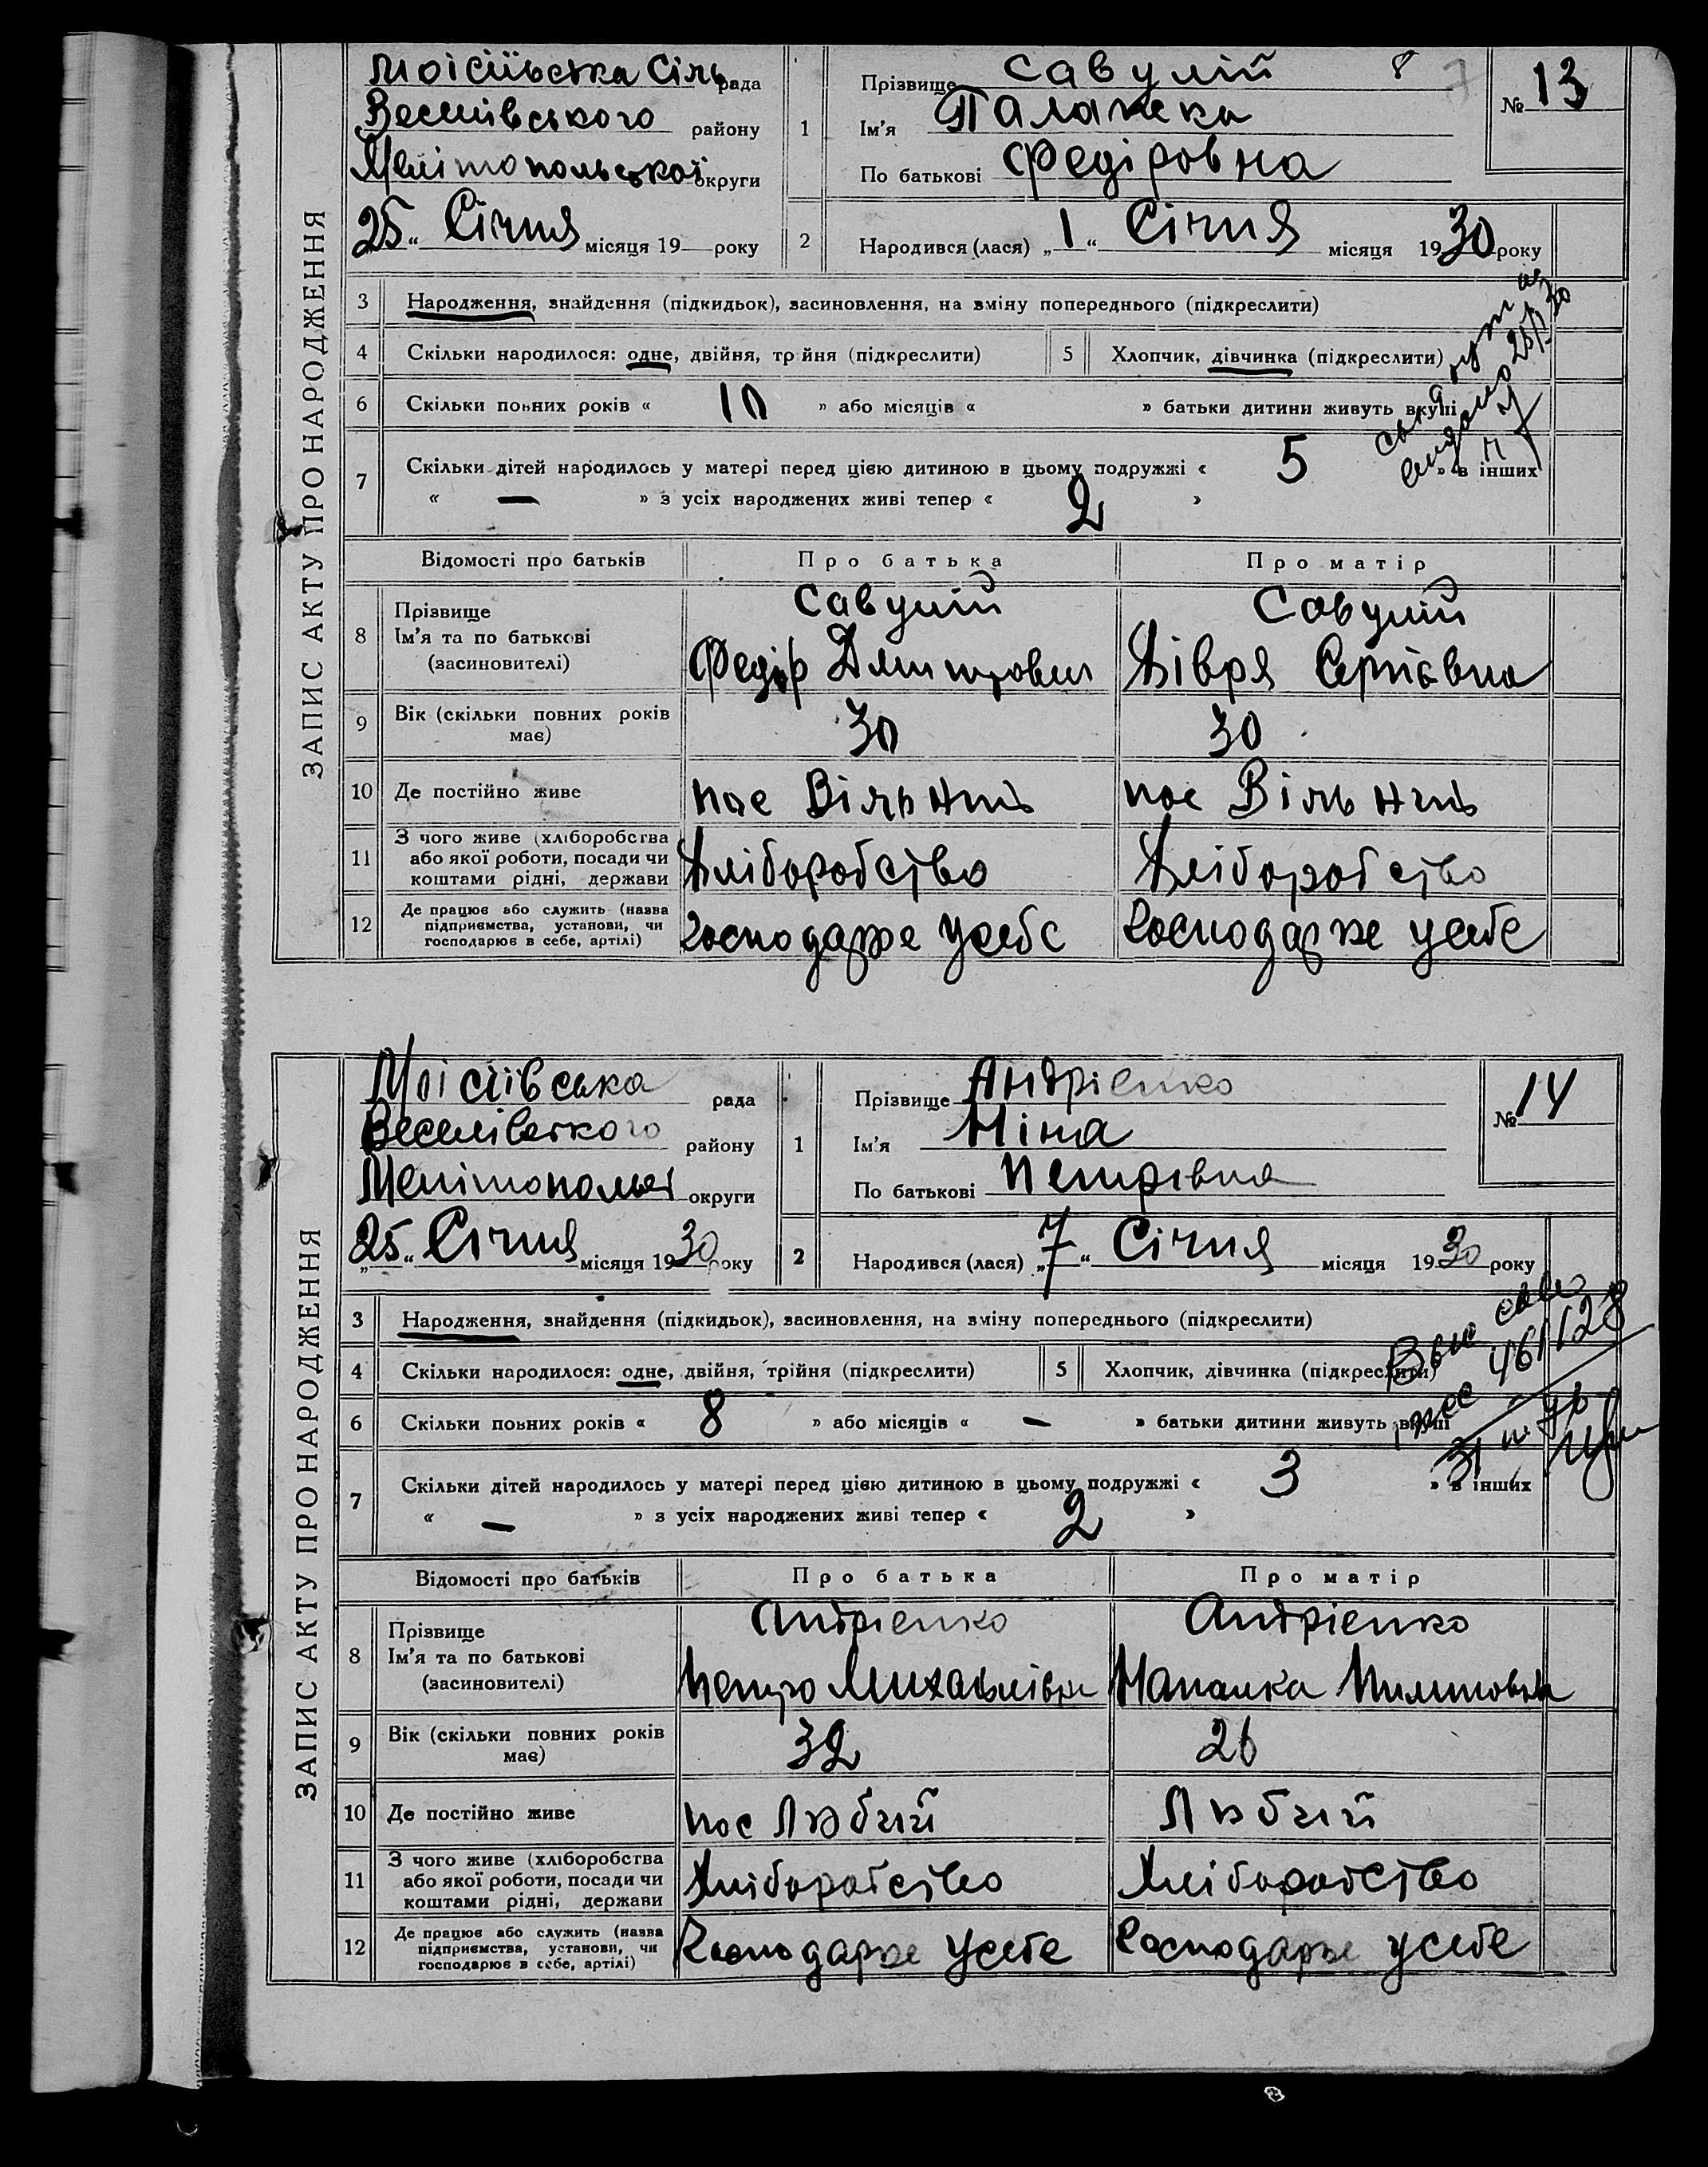 ЗАПИС АКТУ ПРО НАРОДЖЕННЯ
Моісіївська Сіль рада
Веселівського району
Мелітопольської округи
25 “ Січня місяця 19 року
1 Прізвище Савулій 8
Ім'я Палажка
По батькові Федіровна
№ 13
2 Народився (лася) „ 1 “ Січня місяця 1930 року
3 Народження, знайдення (підкидьок), засиновлення, на зміну попереднього (підкреслити)
4 Скільки народилося: одне, двійня, трійня (підкреслити)
5 Хлопчик, дівчинка (підкреслити)
6 Скільки повних років « 10 » або місяців « » батьки дитини живуть вкупі
7 Скільки дітей народилось у матері перед цією дитиною в цьому подружжі « 5 » в інших
« — » з усіх народжених живі тепер « 2 »
Відомості про батьків Про батька Про матір
8 Прізвище Савулій Савулій
Ім'я та по батькові
(засиновителі) Федір Сергіївна
9 Вік (скільки повних років має) 30 30
10 Де постійно живе пос Вільний пос Вільний
11 З чого живе (хліборобства
або якої роботи, посади чи
коштами рідні, держави Хліборобство Хліборобство
12 Де працює або служить (назва
підприємства, установи, чи
господарює в себе, артілі) Господарже усебе Господарже усебе
ЗАПИС АКТУ ПРО НАРОДЖЕННЯ
Моісіївська рада
Веселівського району
округи
25 “ Січня місяця 1930 року
1 Прізвище Андрієнко
Ім'я Ніна
По батькові Петрівна
№ 14
2 Народився (лася) „ 7 “ Січня місяця 1930 року
3 Народження, знайдення (підкидьок), засиновлення, на зміну попереднього (підкреслити)
4 Скільки народилося: одне, двійня, трійня (підкреслити)
5 Хлопчик, дівчинка (підкреслити)
6 Скільки повних років « 8 » або місяців « — » батьки дитини живуть вкупі
7 Скільки дітей народилось у матері перед цією дитиною в цьому подружжі « 3 » в інших
« — » з усіх народжених живі тепер « 2 »
Відомості про батьків Про батька Про матір
8 Прізвище Андрієнко Андрієнко
Ім'я та по батькові
(засиновителі) Петро
9 Вік (скільки повних років має) 32 26
10 Де постійно живе пос Любий Любий
11 З чого живе (хліборобства
або якої роботи, посади чи
коштами рідні, держави Хліборобство Хліборобство
12 Де працює або служить (назва
підприємства, установи, чи
господарює в себе, артілі) Господарже усебе Господарже усебе